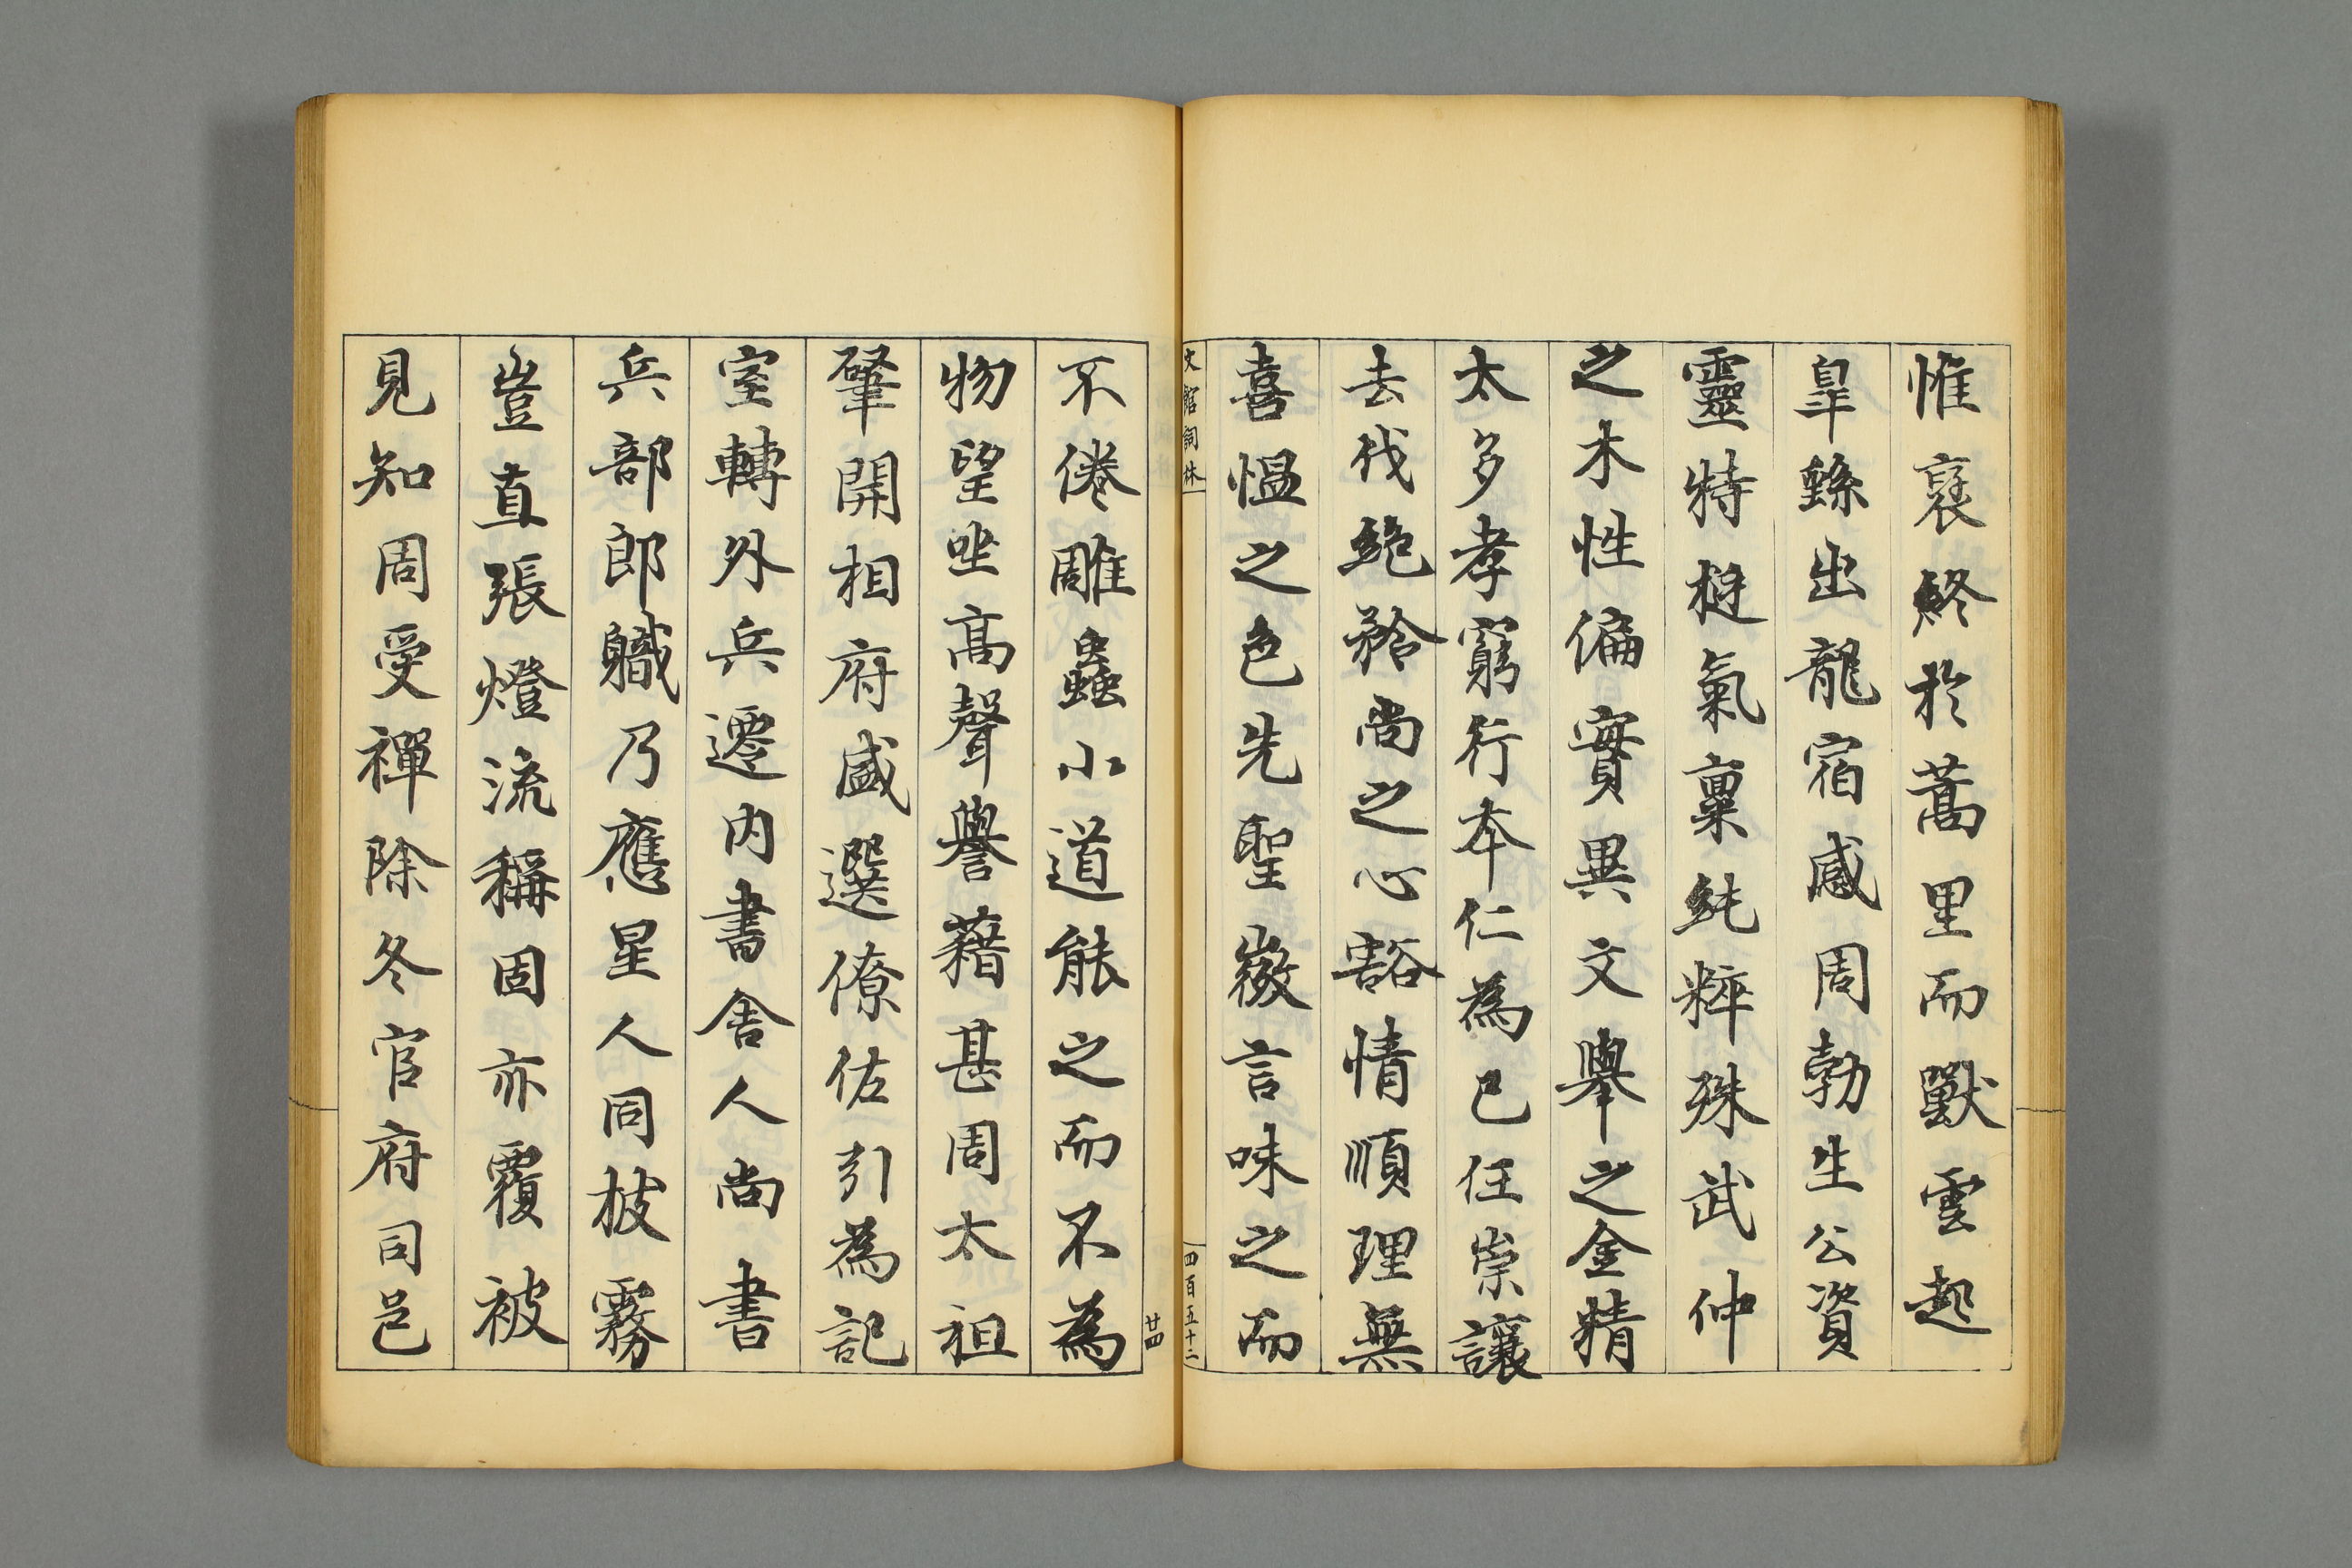 惟裒終於蒿里而獸雲起
皐繇出龍宿感周勃生公資
靈特挺氣稟純粹殊武仲
之木性偏實異文舉之金精
太多孝窮行本仁為已任崇讓
去伐絶矜尚之心豁情順理無
喜慍之色先聖㣲言味之而
文館詞林
四百五十二
廿四
不倦雕蟲小道能之而不為
物望㘴高聲譽藉甚周太祖
肇開相府盛選僚佐引為記
室轉外兵遷內書舍人尚書
兵部郎軄乃應星人同披霧
豈直張燈流稱固亦覆被
見知周受禪除冬官府司邑